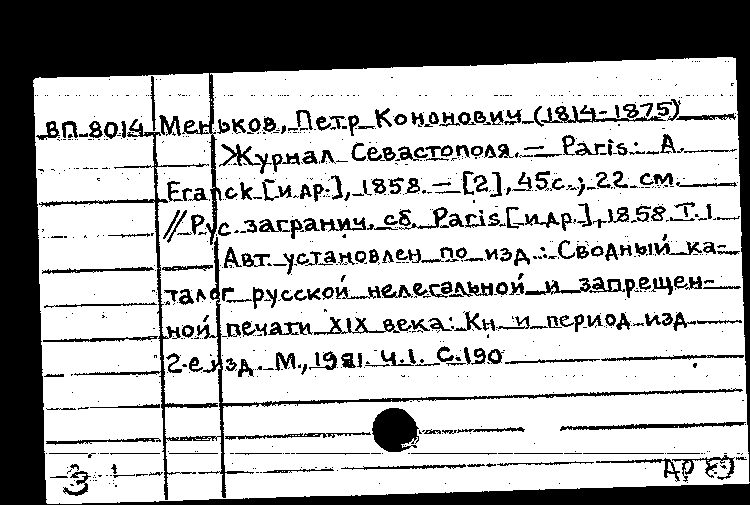 ВП 8014 Меньков, Петр Кононович (1814-1875)
Журнал Севастополя. — Paris: A.
Franck [и др.], 1858. — [2], 45с.; 22 см.
// Рус. загранич. сб. Paris [и др.], 1858. Т. 1
Авт. установлен по изд.: Сводный ка-
талог русской нелегальной и запрещен-
ной печати XIX века: Кн. и период. изд.
2-е изд. М., 1981. Ч.1. С.190
1
АР 89